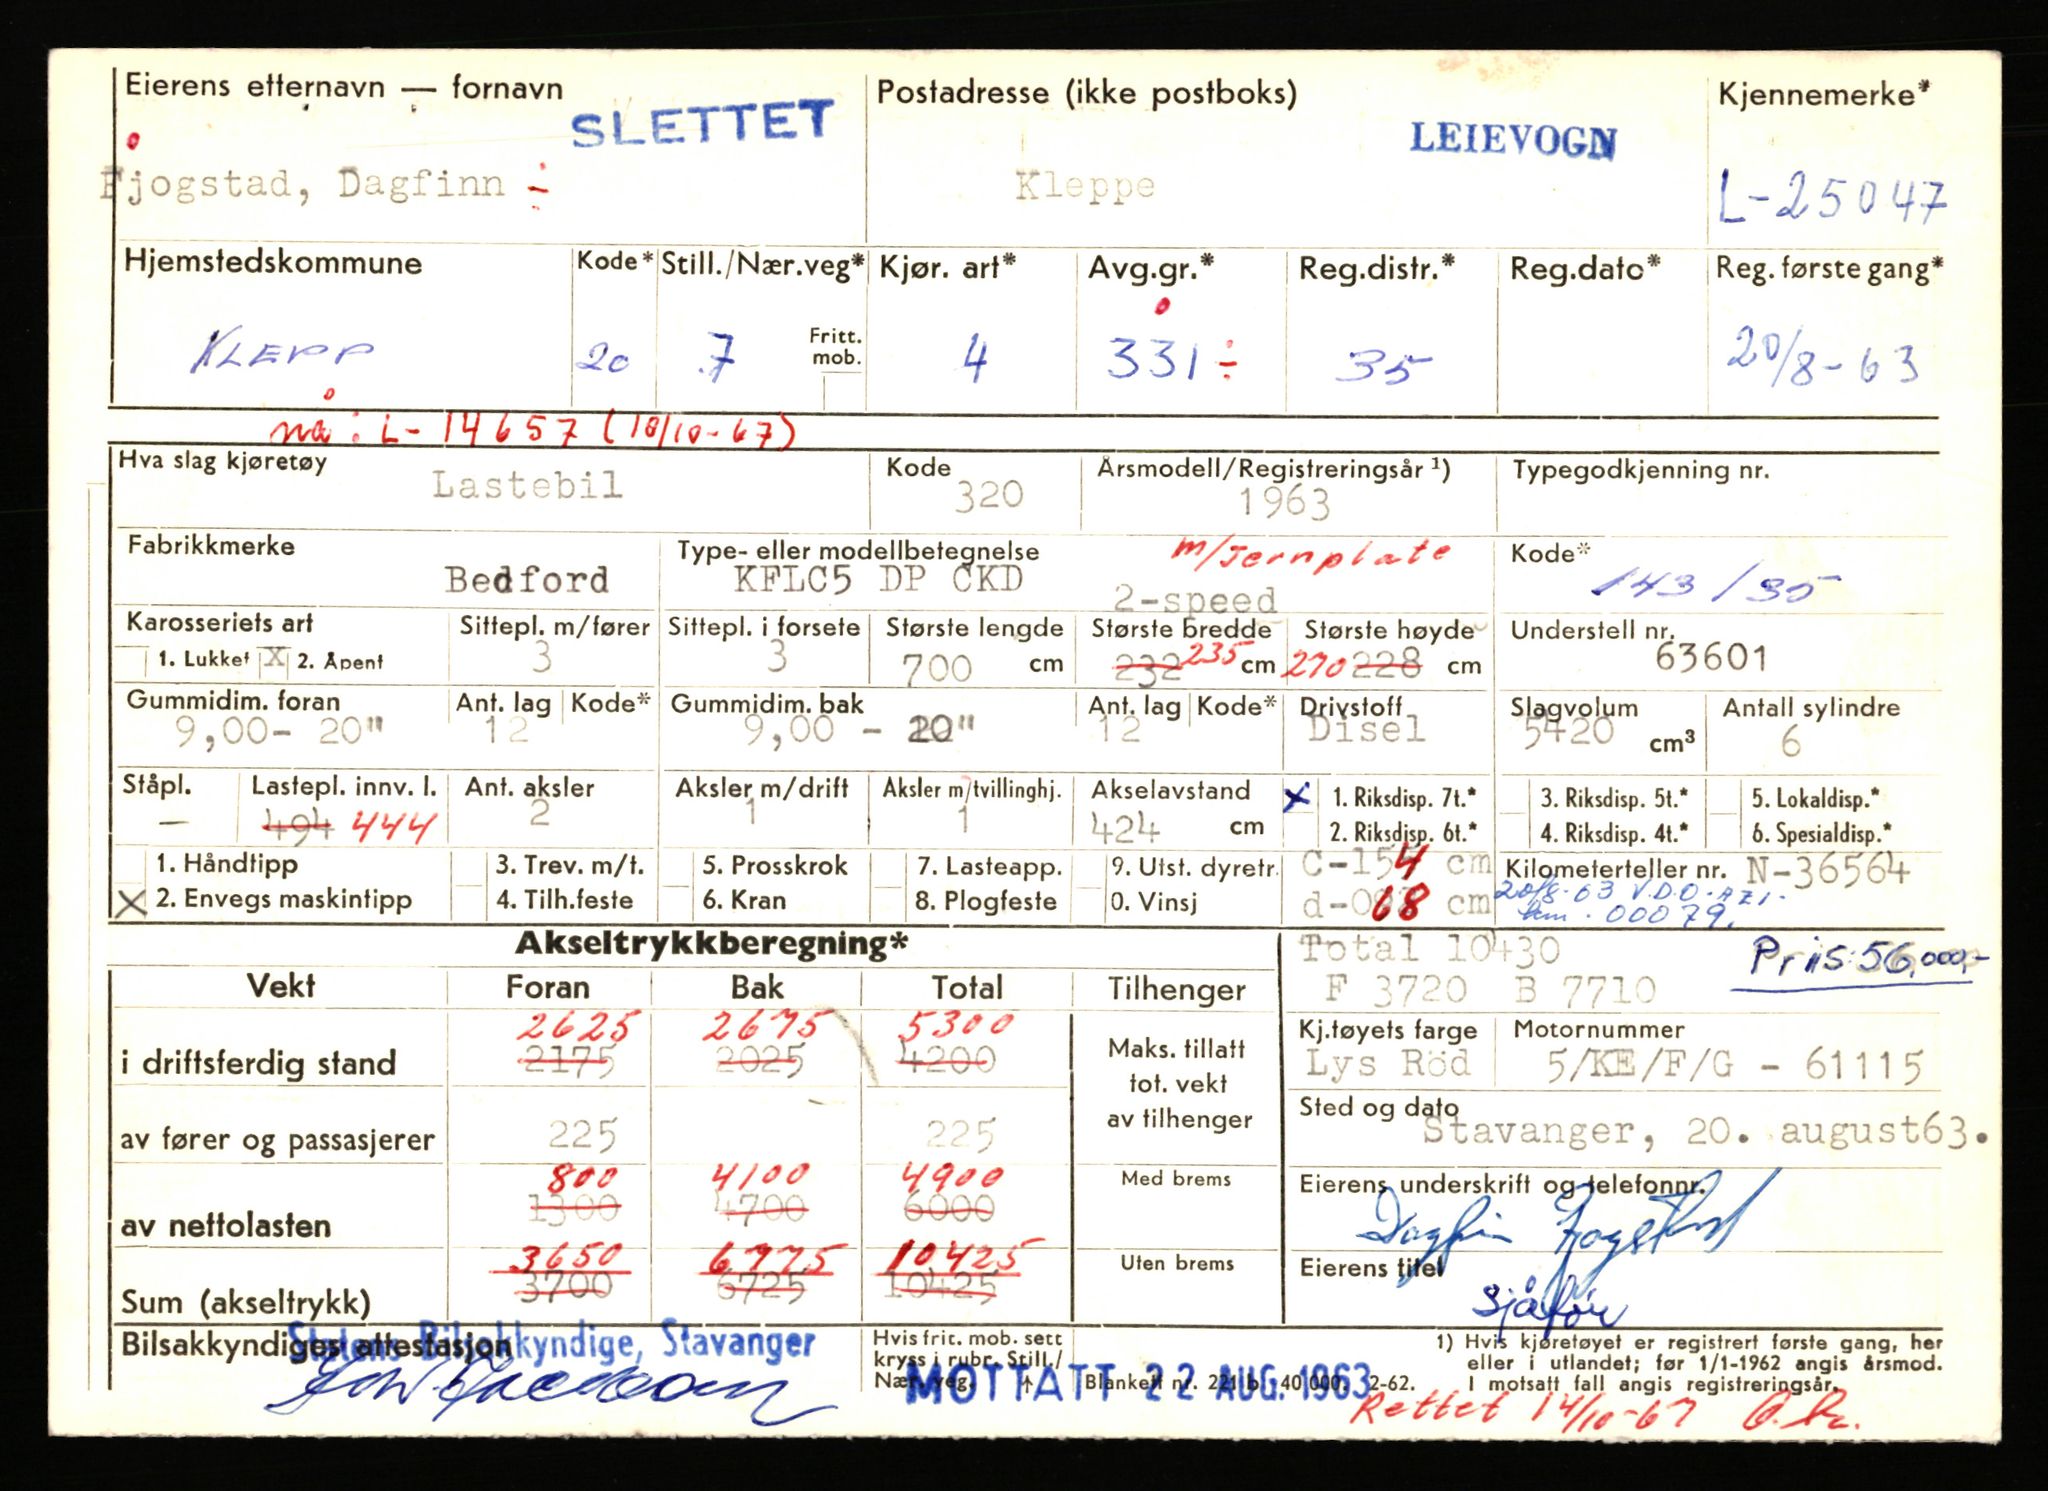 Eierens etternavn — fornavn SLETTET Postadresse (ikke postboks) LEIEVOGN Kjennemerke*
Fjogstad, Dagfinn ÷ Kleppe L-25047
Hjemstedskommune Kode* Still./Nær.veg* Kjør. art* Avg.gr.* Reg.distr.* Reg.dato* Reg. første gang*
KLEPP 20 7 Fritt. mob. 4 331 ÷ 35 20/8-63
nå: L-14657 (10/10-67)
Hva slag kjøretøy Kode Årsmodell/Registreringsår ¹) Typegodkjenning nr.
Lastebil 320 1963
Fabrikkmerke Type- eller modellbetegnelse m/Jernplate Kode*
Bedford KFLC5 DP CKD 2-speed 143/35
Karosseriets art Sittepl. m/fører Sittepl. i forsete Største lengde Største bredde Største høyde Understell nr.
1. Lukket X 2. Åpent 3 3 700 cm 232 235 cm 270 228 cm 63601
Gummidim. foran Ant. lag Kode* Gummidim. bak Ant. lag Kode* Drivstoff Slagvolum Antall sylindre
9,00- 20" 12 9,00 - 20" 12 Disel 5420 cm³ 6
Ståpl. Lastepl. innv. l. Ant. aksler Aksler m/drift Aksler m/tvillinghj. Akselavstand X 1. Riksdisp. 7t.* 3. Riksdisp. 5t.* 5. Lokaldisp.*
— 494 444 2 1 1 424 cm 2. Riksdisp. 6t.* 4. Riksdisp. 4t.* 6. Spesialdisp.*
1. Håndtipp 3. Trev. m/t. 5. Prosskrok 7. Lasteapp. 9. Utst. dyretr. C-154 cm Kilometerteller nr. N-36564
X 2. Envegs maskintipp 4. Tilh.feste 6. Kran 8. Plogfeste 0. Vinsj d-068 cm 20/8-63 V.D.O. AZI.
km. 00079.
Akseltrykkberegning* Total 10430 Pris: 56,000,-
Vekt Foran Bak Total Tilhenger F 3720 B 7710
2625 2675 5300 Kj.tøyets farge Motornummer
i driftsferdig stand 2175 2025 4200 Maks. tillatt Lys Röd 5/KE/F/G - 61115
tot. vekt Sted og dato
av fører og passasjerer 225 225 av tilhenger Stavanger, 20. august63.
800 4100 4900 Med brems Eierens underskrift og telefonnr.
av nettolasten 1300 4700 6000 Dagfin Fjogstad
3650 6775 10425 Uten brems Eierens titel
Sum (akseltrykk) 3700 6725 10425 Sjåfør
Bilsakkyndiges attestasjon Statens Bilsakkyndige, Stavanger Hvis frit. mob. sett 1) Hvis kjøretøyet er registrert første gang, her
kryss i rubr. Still./ eller i utlandet; før 1/1-1962 angis årsmod.
Nær. veg. ↑ Blankett nr. 221 b. 40 000. 2-62. I motsatt fall angis registreringsår.
MOTTATT 22 AUG. 1963
Rettet 14/10-67